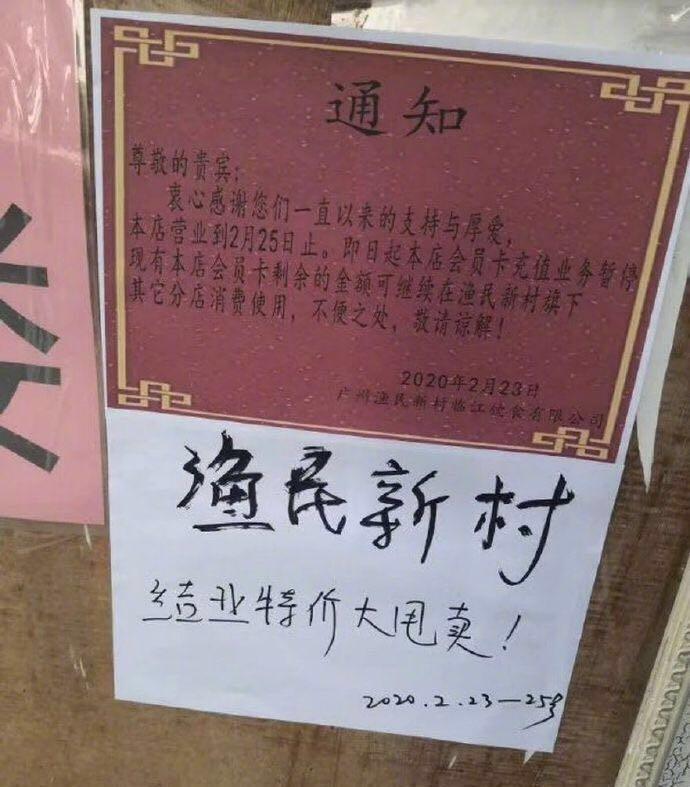 通知
尊敬的贵宾：
衷心感谢您们一直以来的支持与厚爱，
本店营业到2月25日止。即日起本店会员卡充值业务暂停
现有本店会员卡剩余的金额可继续在渔民新村旗下
其它分店消费使用，不便之处，敬请谅解！
2020年2月23日
广州渔民新村临江饮食有限公司
渔民新村
结业特价大甩卖！
2020.2.23—25号